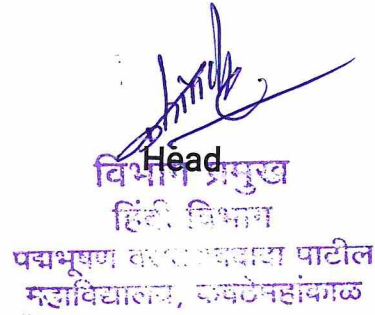 Head
विभाग प्रमुख
हिंदी विभाग
पद्मभूषण पाटील
महाविद्यालय, कवठेमहांकाळ